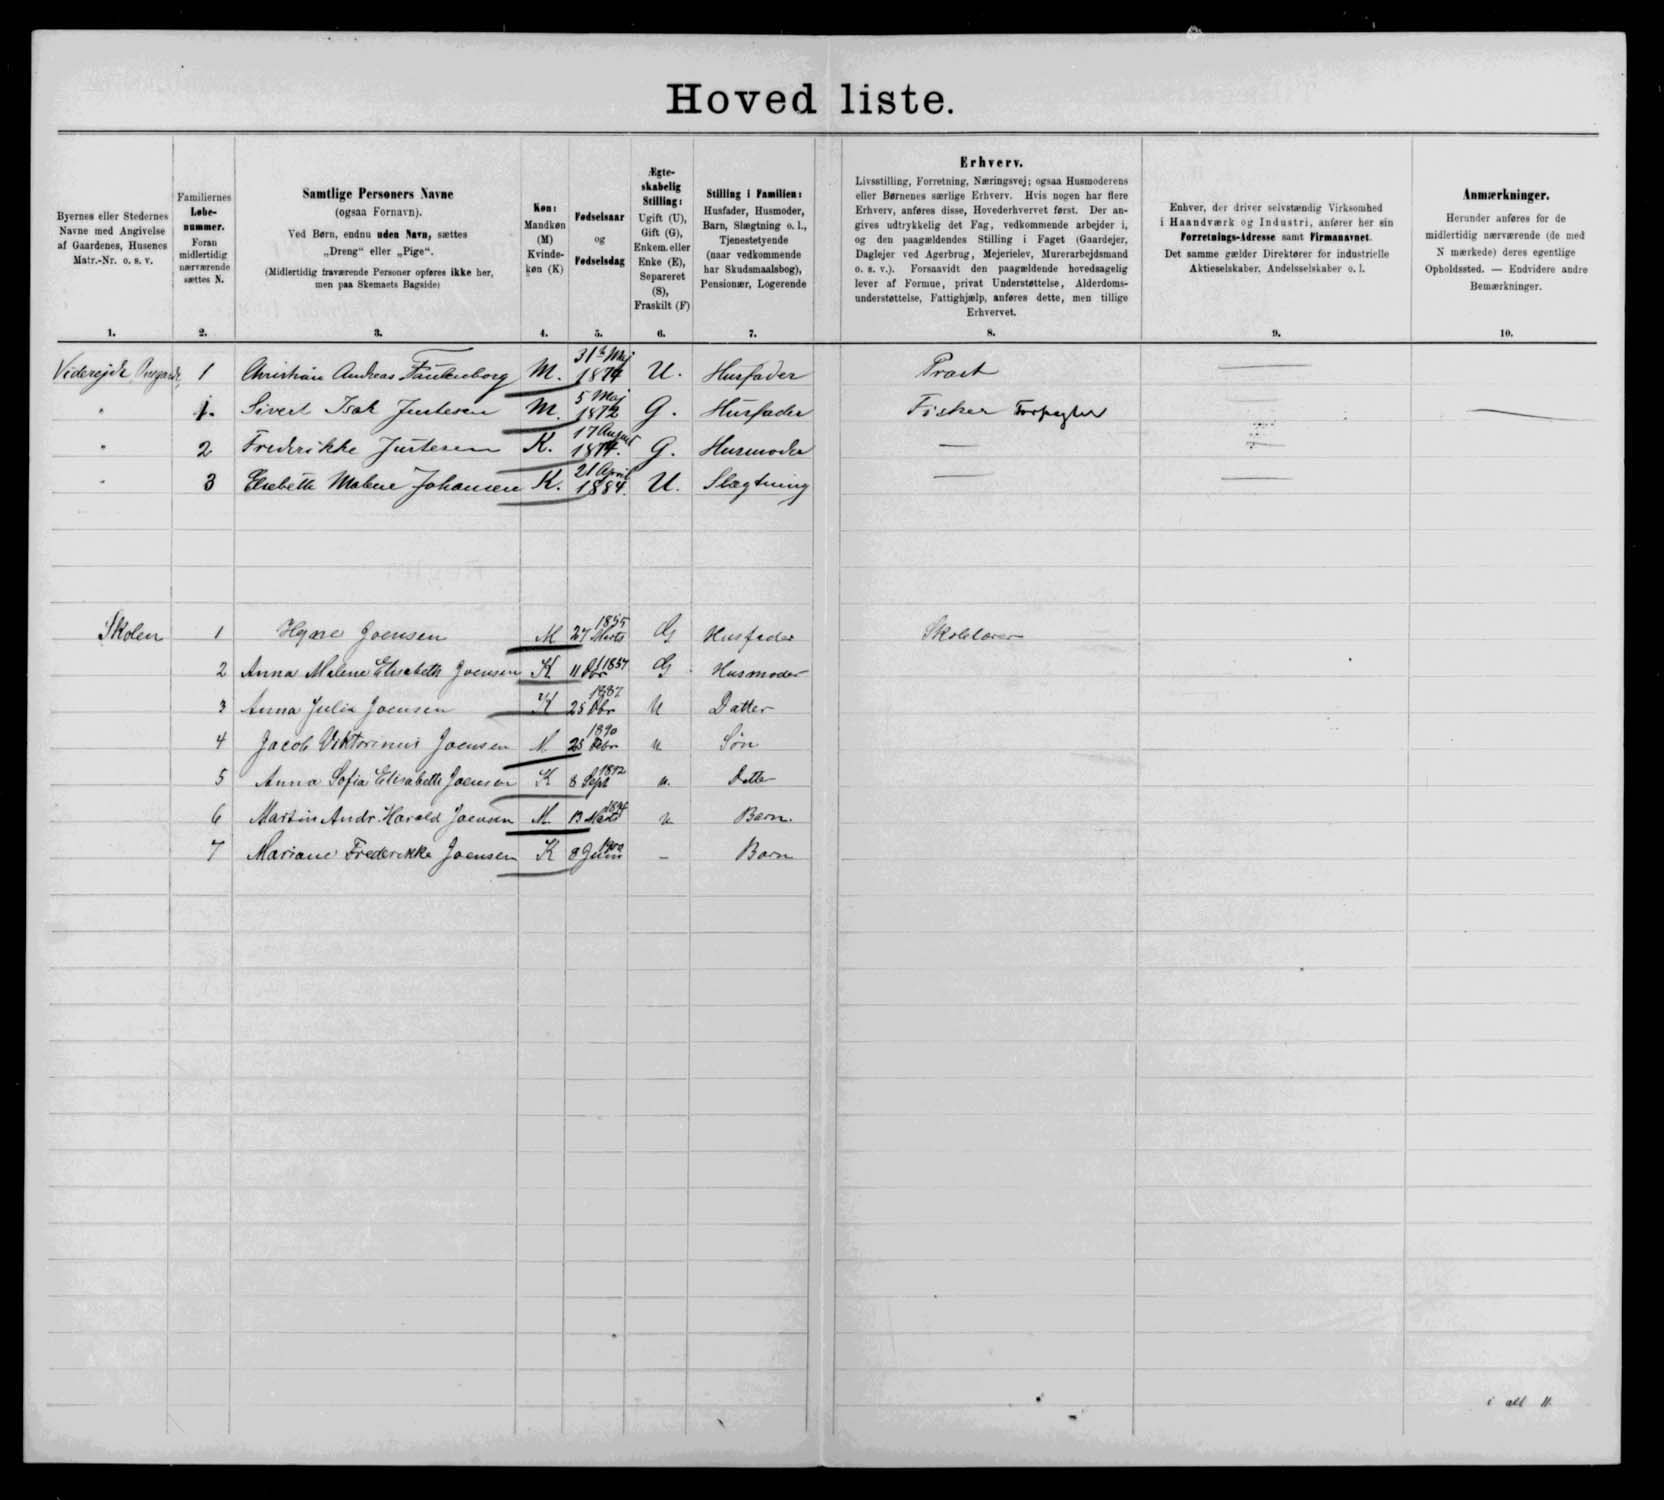 Hovedliste.
Byernes eller Stedernes
Navne med Angivelse
af Gaardenes, Husenes
Matr.-Nr. o. s. v.
1.
Familiernes
Løbe-
nummer.
Foran
midlertidig
nærværende
sættes N.
2.
Samtlige Personers Navne
(ogsaa Fornavn).
Ved Børn, endnu uden Navn, sættes
„Dreng“ eller „Pige“.
(Midlertidig fraværende Personer opføres ikke her,
men paa Skemaets Bagside)
3.
Køn:
Mandkøn
(M)
Kvinde-
køn (K)
4.
Fødselsaar
og
Fødselsdag
5.
Ægte-
skabelig
Stilling:
Ugift (U),
Gift (G),
Enkem. eller
Enke (E),
Separeret
(S),
Fraskilt (F)
6.
Stilling i Familien:
Husfader, Husmoder,
Barn, Slægtning o. l.,
Tjenestetyende
(naar vedkommende
har Skudsmaalsbog),
Pensionær, Logerende
7.
Erhverv.
Livsstilling, Forretning, Næringsvej; ogsaa Husmoderens
eller Børnenes særlige Erhverv. Hvis nogen har flere
Erhverv, anføres disse, Hovederhvervet først. Der an-
gives udtrykkelig det Fag, vedkommende arbejder i,
og den paagældendes Stilling i Faget (Gaardejer,
Daglejer ved Agerbrug, Mejerielev, Murerarbejdsmand
o. s. v.). Forsaavidt den paagældende hovedsagelig
lever af Formue, privat Understøttelse, Alderdoms-
understøttelse, Fattighjælp, anføres dette, men tillige
Erhvervet.
8.
Enhver, der driver selvstændig Virksomhed
i Haandværk og Industri, anfører her sin
Forretnings-Adresse samt Firmanavnet.
Det samme gælder Direktører for industrielle
Aktieselskaber, Andelsselskaber o. l.
9.
Anmærkninger.
Herunder anføres for de
midlertidig nærværende (de med
N mærkede) deres egentlige
Opholdssted. — Endvidere andre
Bemærkninger.
10.
Viderejde 1 Christian Andreas M. 31te Maj 1874 U. Husfader Præst —
" 1. Sivert Isak Justesen M. 5 Maj 1872 G. Husfader Fisker —
" 2 Frederikke Justesen K. 17 August 1874. G. Husmoder —
" 3 Elsebeth Malene Johansen K. 21 April 1884. U. Slægtning — —
Skolen 1 Joensen M 27 Marts 1855 G Husfader Skolelærer
2 Anna Malene Elisabeth Joensen K 11 1857 G Husmoder
3 Anna Julia Joensen K 25 1887 U Datter
4 Jacob Viktorinus Joensen M 25 1890 u Søn
5 Anna Sofia Elisabeth Joensen K 8 Sept u. Datter
6 Martin Andr. Harald Joensen M. 13 u Barn.
7 Mariane Frederikke Joensen K 8 Juni – Barn
i alt 11